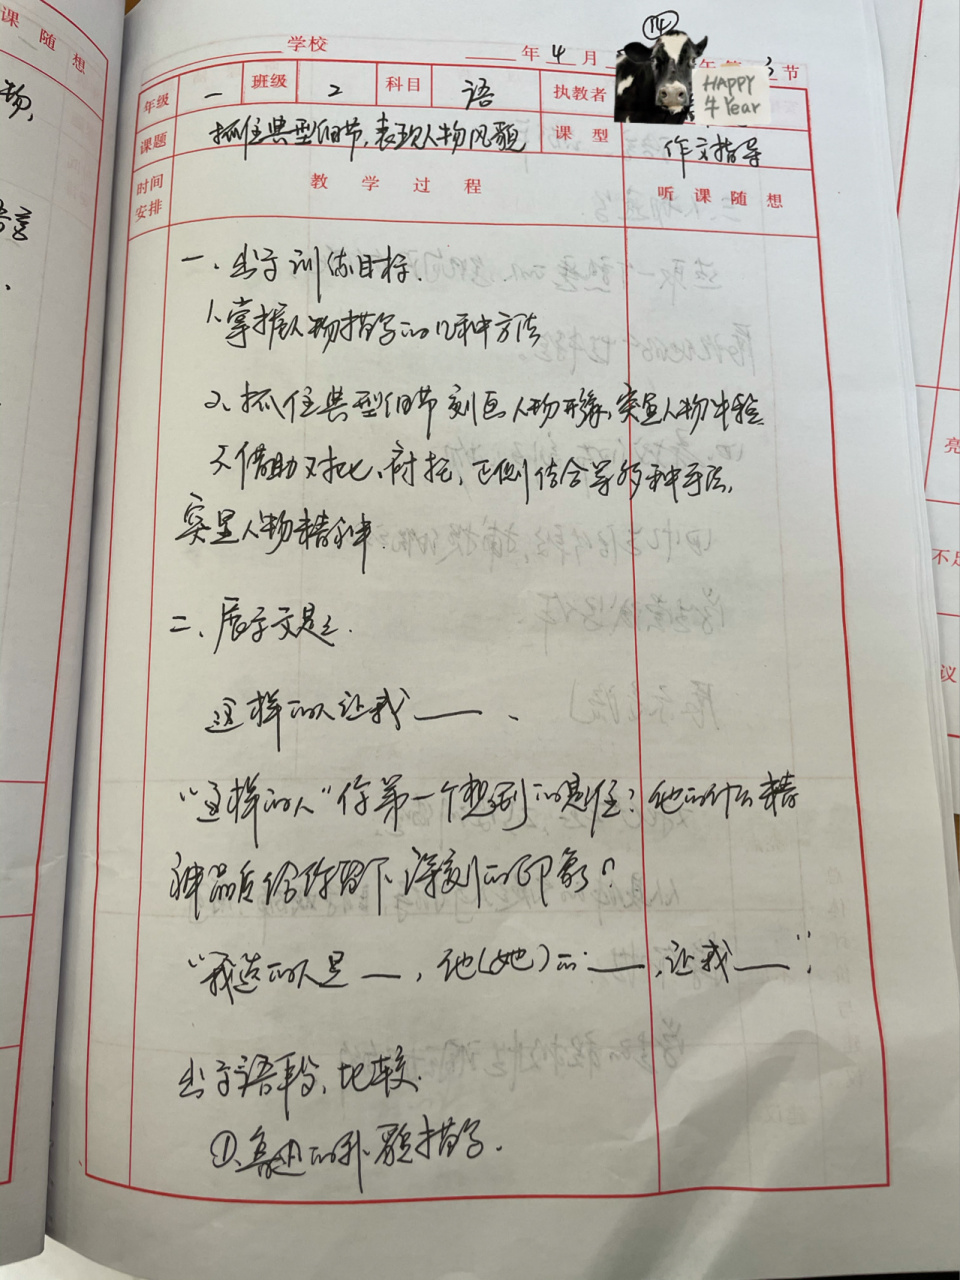 课 随 想
物,
学校 年 4 月 年 第 3 节
14
HAPPY
牛 Year
年级 一 班级 2 科目 语 执教者
课题 抓住典型细节,表现人物风貌 课 型 作文指导
时间安排 教 学 过 程 听 课 随 想
一、出示训练目标.
1.掌握人物描写的几种方法
2、抓住典型细节刻画人物形象,突显人物
3、借助对比、衬托,正侧结合等多种手法,
突显人物精神.
二、展示文题:
这样的人让我——.
“这样的人”你第一个想到的是谁?他的什么精
神品质给你留下深刻的印象?
“我选的人是——,他(她)的——,让我——”.
出示语段,比较.
①.鲁迅的外貌描写.
亮
不足
议